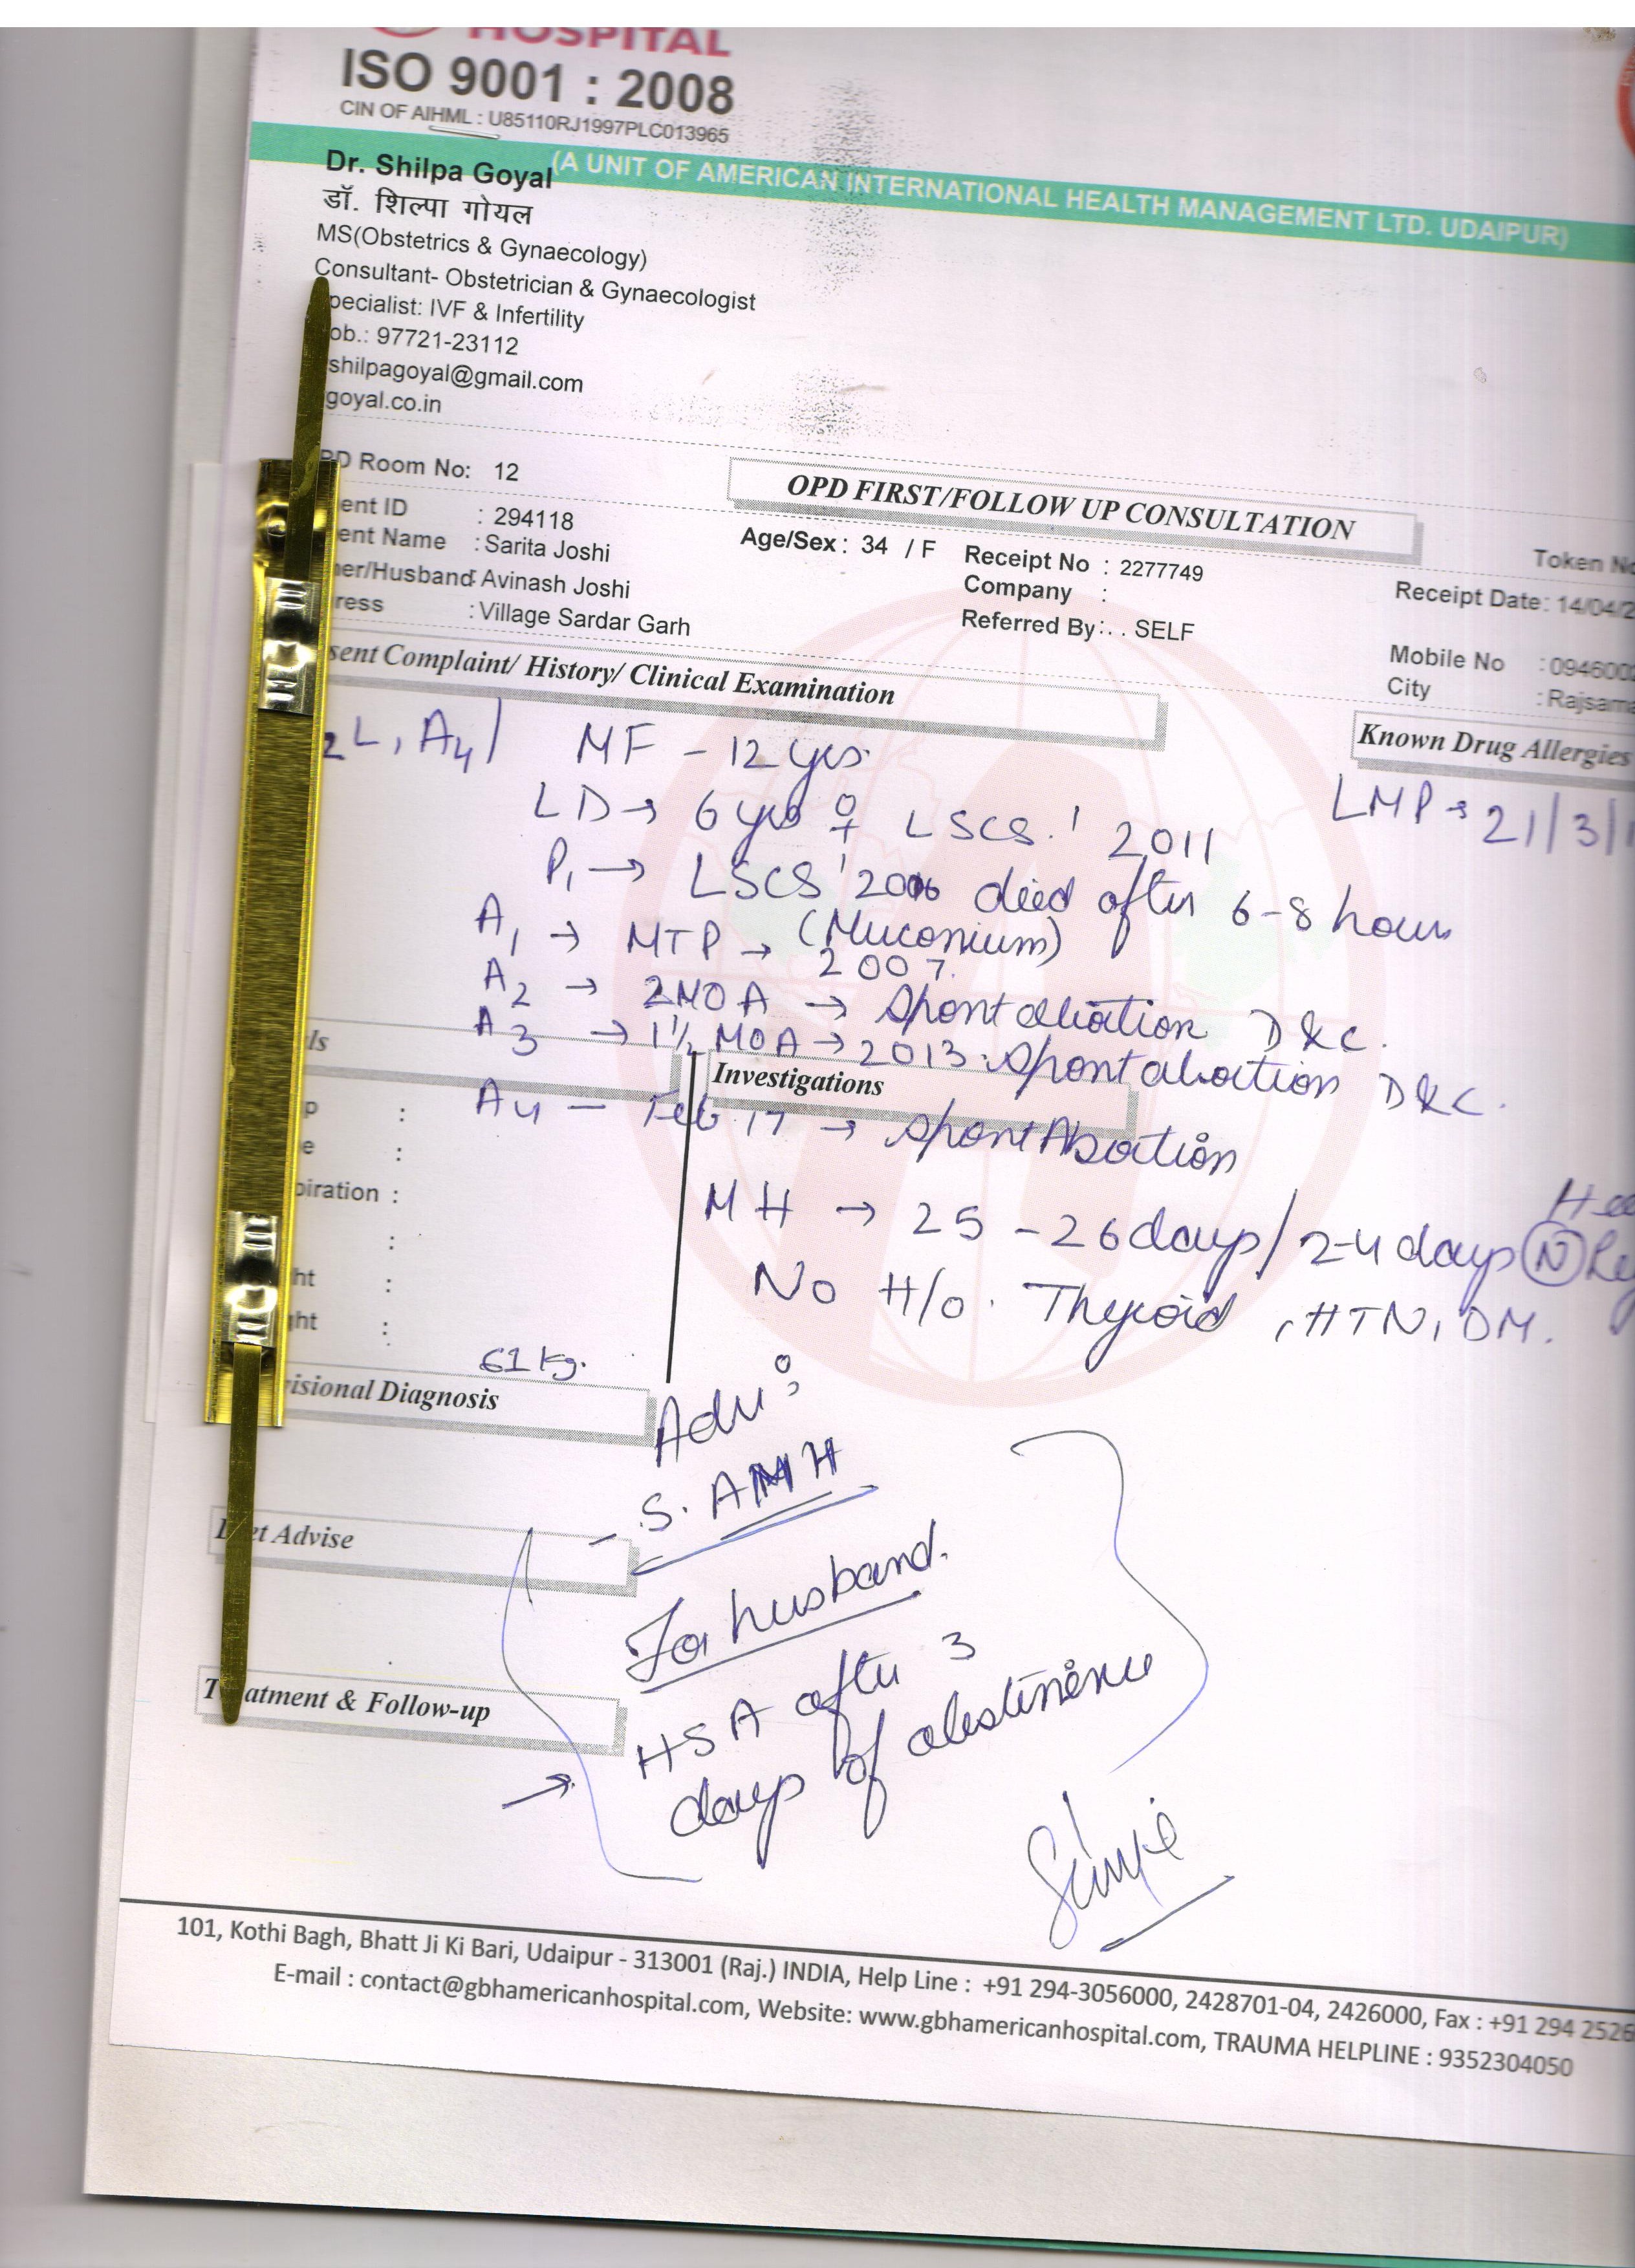 HOSPITAL
ISO 9001 : 2008
CIN OF AIHML : U85110RJ1997PLC013965
(A UNIT OF AMERICAN INTERNATIONAL HEALTH MANAGEMENT LTD. UDAIPUR)
Dr. Shilpa Goyal
डॉ. शिल्पा गोयल
MS(Obstetrics & Gynaecology)
Consultant- Obstetrician & Gynaecologist
pecialist: IVF & Infertility
ob.: 97721-23112
shilpagoyal@gmail.com
goyal.co.in
PD Room No: 12
OPD FIRST/FOLLOW UP CONSULTATION
Token No
ent ID : 294118
Age/Sex : 34 / F
Receipt No : 2277749
Receipt Date: 14/04/2
ent Name : Sarita Joshi
Company :
er/Husband: Avinash Joshi
Referred By : . . SELF
Mobile No : 094600
ress : Village Sardar Garh
City : Rajsama
sent Complaint/ History/ Clinical Examination
Known Drug Allergies
2 L, A4 / MF - 12 yrs
LMP → 21/3/1
LD → 6 yrs ♀ LSCS ' 2011
P1 → LSCS ' 2006 died after 6-8 hours
(Muconium)
A1 → MTP → 2007.
A2 → 2MOA → Spont abortion D&C.
A3 → 1½ MOA → 2013. Spont abortion D&C.
ls
Investigations
A4 - Feb 17 → Spont Abortion
p :
e :
piration :
:
ht :
ght :
MH → 25 - 26 days / 2-4 days (N) Reg
No H/o. Thyroid , HTN, DM.
61 kg.
isional Diagnosis
Adv:
- S. AMH
et Advise
For husband.
HSA after 3
days of abstinence
T atment & Follow-up
→
101, Kothi Bagh, Bhatt Ji Ki Bari, Udaipur - 313001 (Raj.) INDIA, Help Line : +91 294-3056000, 2428701-04, 2426000, Fax : +91 294 2526
E-mail : contact@gbhamericanhospital.com, Website: www.gbhamericanhospital.com, TRAUMA HELPLINE : 9352304050